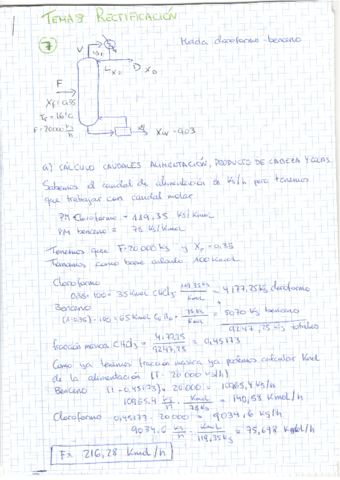 TEMA 8 RECTIFICACIÓN
7
Mezcla cloroformo-benceno
V
L
D
XD
F
XF=0,35
TF=16ºC
F=20000 Kg/h
XW=0,03
a) CÁLCULO CAUDALES ALIMENTACIÓN, PRODUCTO DE CABEZA Y COLAS.
Sabemos el caudal de alimentación de Kg/h pero tenemos
que trabajar con caudal molar
PM Cloroformo = 119,35 Kg/Kmol
PM benceno = 78 Kg/Kmol
Tenemos que F=20000 Kg y XF=0,35
Tomamos como base cálculo 100 Kmol
Cloroformo
0,35·100 = 35 Kmol CHCl3 · 119,35 Kg/Kmol = 4177,25 Kg cloroformo
Benceno
(1-0,35)·100 = 65 Kmol C6H6 · 78 Kg/Kmol = 5070 Kg benceno
9247,25 Kg totales
fracción másica CHCl3 = 4177,25/9247,25 = 0,45173
Como ya tenemos fracción másica ya podemos calcular Kmol
de la alimentación (F=20000 Kg/h)
Benceno (1-0,45173)·20000 = 10965,4 Kg/h
10965,4 Kg/h · Kmol/78Kg = 140,58 Kmol/h
Cloroformo 0,45173·20000 = 9034,6 Kg/h
9034,6 Kg/h · Kmol/119,35Kg = 75,698 Kmol/h
F= 216,28 Kmol/h